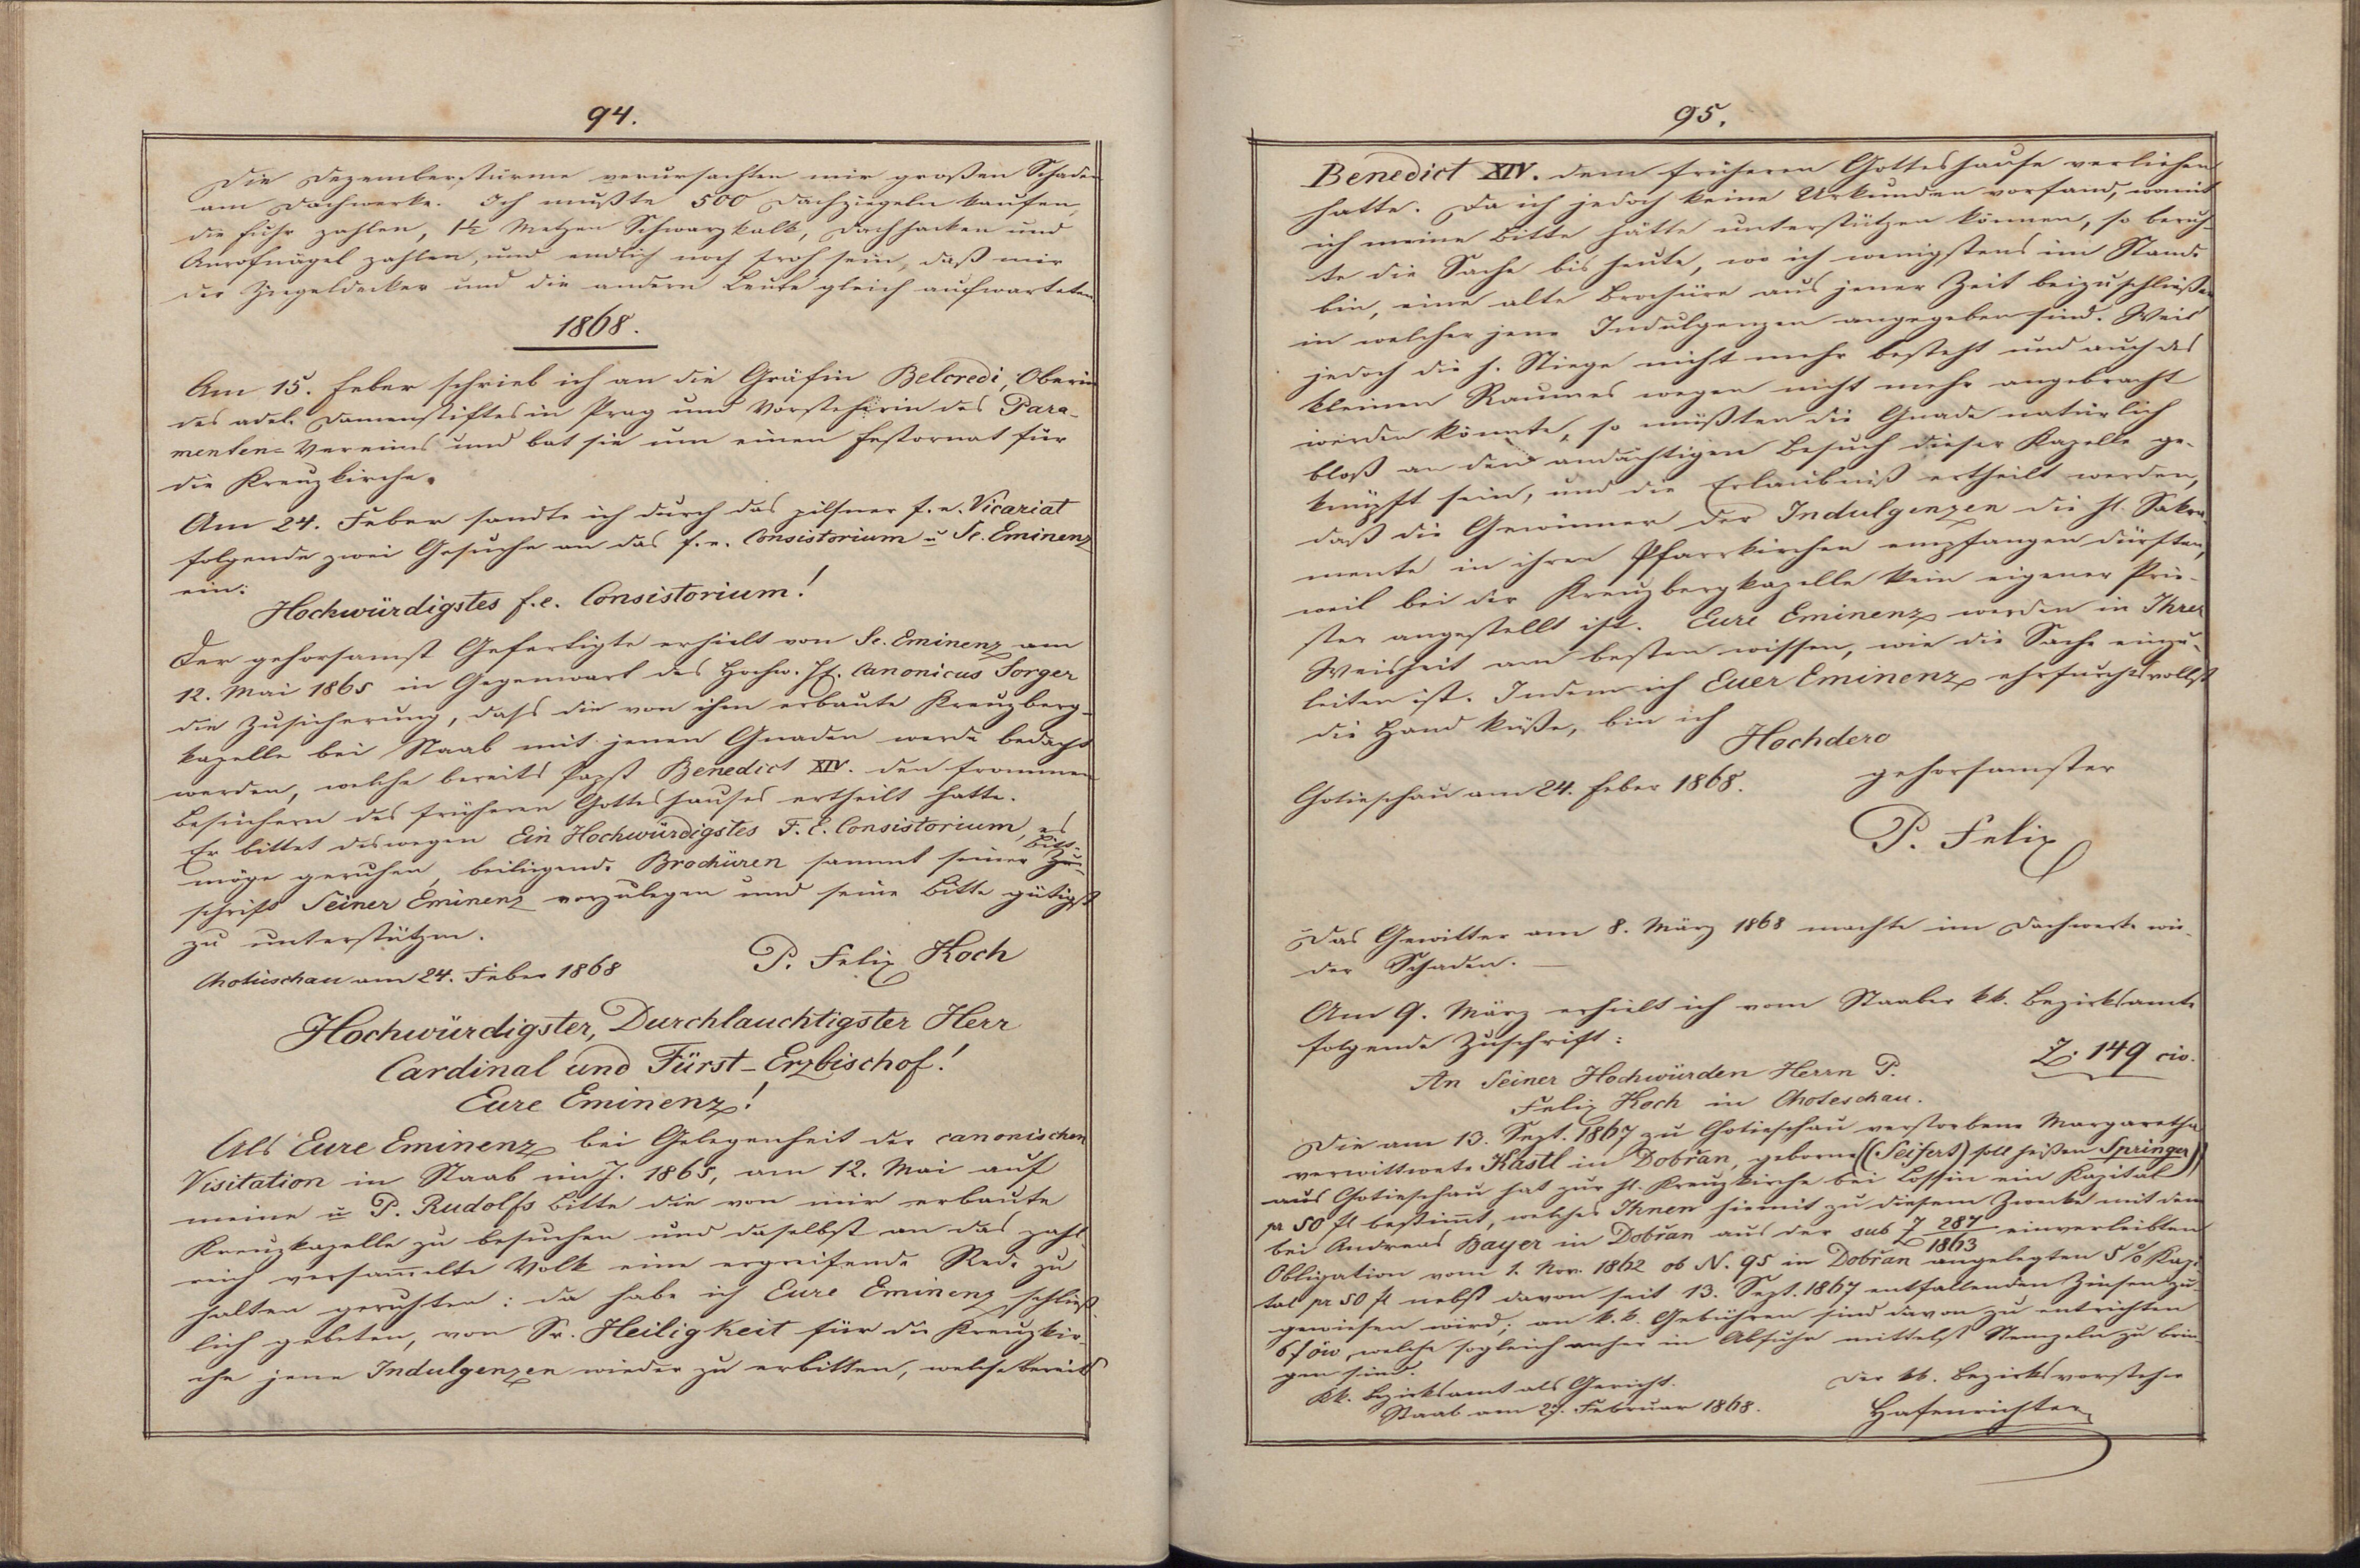 94.
Die Dezemberstürme verursachten mir großen Schaden
am Dachwerke. Ich mußte 500 Dachziegeln kaufen,
die Fuhr zahlen, 1½ Metzen Schwarzkalk, Dachhacken und
zahlen, und endlich noch froh sein, daß mir
der Ziegeldecker und die andern Leute gleich aufwarteten
1868.
Am 15. Feber schrieb ich an die Gräfin Belcredi, Oberin
des adel. Damenstiftes in Prag und Vorsteherin des Para-
menten-Vereines und bat sie um einen Festornat für
die Kreuzkirche.
Am 24. Feber sandte ich durch das pilsner f. e. Vicariat
folgende zwei Gesuche an das f. e. Consistorium u Se. Eminenz
ein:
Hochwürdigstes f. e. Consistorium!
Der gehorsamst Gefertigte erhielt von Sr. Eminenz am
12. Mai 1865 in Gegenwart des Hochw. H. Canonicus Sorger
die Zusicherung, dass die von ihm erbaute Kreuzberg-
kapelle bei Staab mit jenen Gnaden werde bedacht
werden, welche bereits Papst Benedict XIV. den frommen
Besuchern des früheren Gotteshauses ertheilt hatte.
Er bittet deswegen Ein Hochwürdigstes F. E. Consistorium, es
möge geruhen, beiliegende Brochüren sammt seiner Bitt-
schrift Seiner Eminenz vorzulegen und seine Bitte gütigst
zu unterstützen.
Chotieschau am 24. Feber 1868 P. Felix Koch
Hochwürdigster, Durchlauchtigster Herr
Cardinal und Fürst-Erzbischof!
Eure Eminenz!
Als Eure Eminenz bei Gelegenheit der canonischen
Visitation in Staab im J. 1865, am 12. Mai auf
meine u P. Rudolfs Bitte die von mir erbaute
Kreuzkapelle zu besuchen und daselbst an das zahl-
reich versam̄elte Volk eine ergreifende Rede zu
halten geruhten: da habe ich Eure Eminenz schließ-
lich gebeten, von Sr. Heiligkeit für die Kreuzkir-
che jene Indulgenzen wieder zu erbitten, welche bereits
95.
Benedict XIV. dem früheren Gotteshause verliehen
hatte. Da ich jedoch keine Urkunden vorfand, womit
ich meine Bitte hätte unterstützen können, so beruh-
te die Sache bis heute, wo ich wenigstens im Stande
bin, eine alte Brochüre aus jener Zeit beizuschließen
in welcher jene Indulgenzen angegeben sind. Weil
jedoch die h. Stiege nicht mehr besteht und auch des
kleinen Raumes wegen nicht mehr angebracht
werden könnte, so müßten die Gnade natürlich
bloß an den andächtigen Besuch dieser Kapelle ge-
knüpft sein, und die Erlaubniß ertheilt werden,
daß die Gewinner der Indulgenzen die hl. Sakra-
mente in ihren Pfarrkirchen empfangen dürften,
weil bei der Kreuzbergkapelle kein eigener Prie-
ster angestellt ist. Eure Eminenz werden in Ihrer
Weisheit am besten wissen, wie die Sache einzu-
leiten ist. Indem ich Euer Eminenz ehrfurchtsvollst
die Hand küße, bin ich
Hochdero
Chotieschau am 24. Feber 1868. gehorsamster
P. Felix
Das Gewitter am 8. März 1868 machte im Dachwerke wie-
der Schaden. —
Am 9. März erhielt ich vom Staaber kk. Bezirksamte
folgende Zuschrift:
Z. 149 civ.
An Seiner Hochwürden Herrn P.
Felix Koch in Choteschau.
Die am 13. Sept. 1867 zu Chotieschau verstorbene Margaretha
verwittwete Kastl in Dobřan, geborne ((Seifert) soll heißen Springer))
aus Chotieschau hat zur hl. Kreuzkirche bei Lossin ein Kapital
pr 50 fl bestim̄t, welches Ihnen hiemit zu diesem Zwecke mit dem
bei Andreas Bayer in Dobřan aus der sub Z 287/1863 einverleibten
Obligation vom 1. Nov. 1862 ob N. 95 in Dobřan angelegten 5% Kapi-
tal pr 50 fl nebst davon seit 13. Sept. 1867 entfallenden Zinsen zu-
gewiesen wird; an k. k. Gebühren sind davon zu entrichten
6 f öw, welche sogleich anher in Abfuhr mittelst Stempeln zu brin-
gen sind.
KK. Bezirksamt als Gericht. Der kk. Bezirksvorsteher
Staab am 27. Februar 1868. Hafenrichter